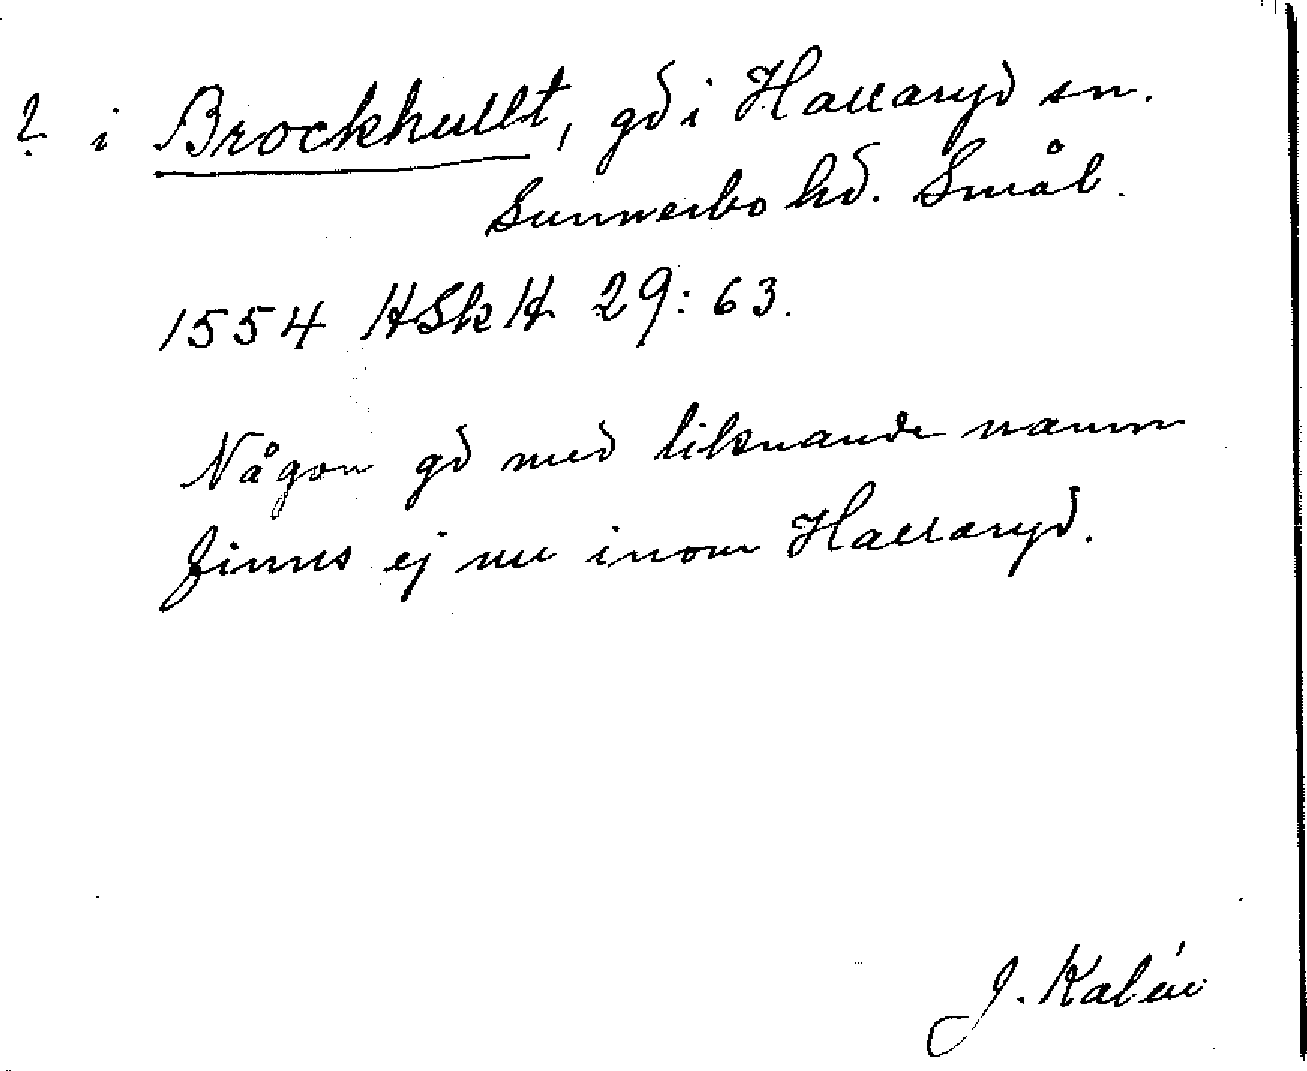 ? i Brockhullt, gd i Hallaryd sn.
Sunnerbo hd. Smål.
1554 HSkH 29:63.
Någon gd med liknande namn
finns ej nu inom Hallaryd.
J. Kalén